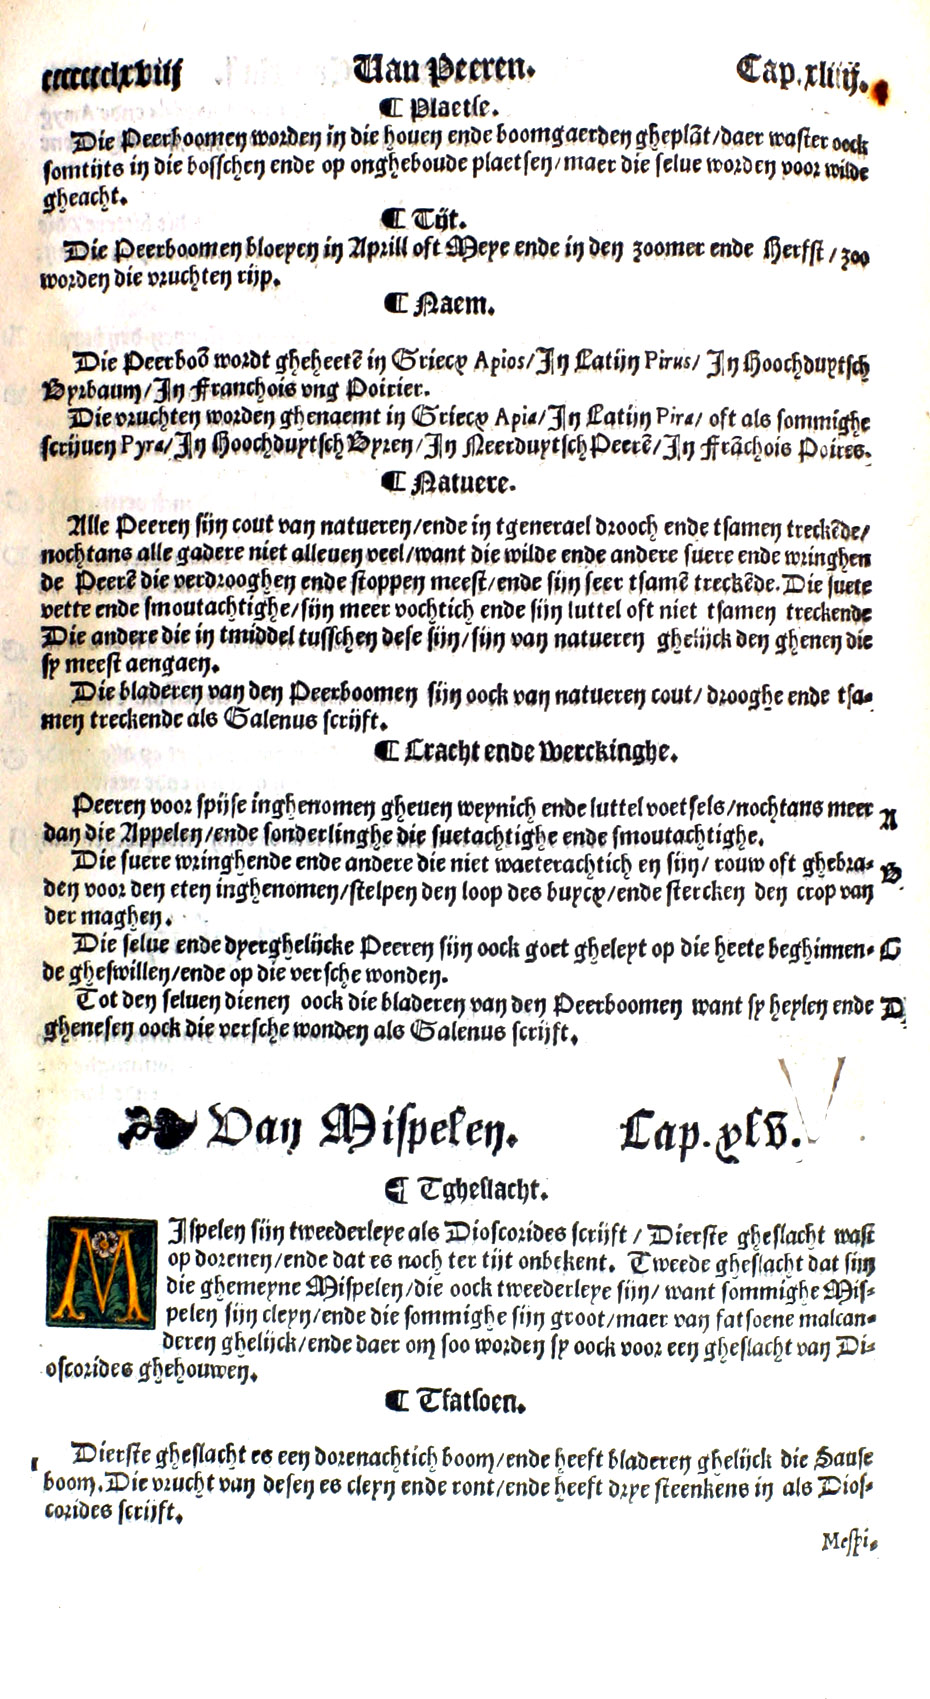 ccccccclxviij Van Peeren. Cap.xliiij.
¶ Plaetse.
Die Peerboomen worden in die houen ende boomgaerden gheplãt/daer waster oock
somtijts in die bosschen ende op ongheboude plaetsen/maer die selue worden voor wilde
gheacht.
¶ Tijt.
Die Peerboomen bloeyen in Aprill oft Meye ende in den zoomer ende Herfst/zoo
worden die vruchten rijp.
¶ Naem.
Die Peerboõ wordt gheheetẽ in Griecx Apios/In Latijn Pirus/ In Hoochduytsch
Byrbaum/In Franchois vng Poirier.
Die vruchten worden ghenaemt in Griecx Apia/In Latijn Pira/ oft als sommighe
scrijuen Pyra/In Hoochduytsch Byren/In Neerduytsch Peerẽ/In Frãchois Poires.
¶ Natuere.
Alle Peeren sijn cout van natueren/ende in tgenerael drooch ende tsamen treckẽde/
nochtans alle gadere niet alleuen veel/want die wilde ende andere suere ende wringhen
de Peerẽ die verdrooghen ende stoppen meest/ende sijn seer tsamẽ treckẽde. Die suete
vette ende smoutachtighe/sijn meer vochtich ende sijn luttel oft niet tsamen treckende
Die andere die in tmiddel tusschen dese sijn/sijn van natueren ghelijck den ghenen die
sy meest aengaen.
Die bladeren van den Peerboomen sijn oock van natueren cout/ drooghe ende tsa-
men treckende als Galenus scrijft.
¶ Cracht ende Werckinghe.
Peeren voor spijse inghenomen gheuen weynich ende luttel voetsels/nochtans meer A
dan die Appelen/ende sonderlinghe die suetachtighe ende smoutachtighe.
Die suere wringhende ende andere die niet waeterachtich en sijn/ rouw oft ghebra- B
den voor den eten inghenomen/stelpen den loop des buycx/ende stercken den crop van
der maghen.
Die selue ende dyerghelijcke Peeren sijn oock goet gheleyt op die heete beghinnen- C
de gheswillen/ende op die versche wonden.
Tot den seluen dienen oock die bladeren van den Peerboomen want sy heylen ende D
ghenesen oock die versche wonden als Galenus scrijft.
Van Mispelen. Cap.xlv.
¶ Tgheslacht.
MIspelen sijn tweederleye als Dioscorides scrijft / Dierste gheslacht wast
op dorenen/ende dat es noch ter tijt onbekent. Tweede gheslacht dat sijn
die ghemeyne Mispelen/die oock tweederleye sijn/ want sommighe Mis-
pelen sijn cleyn/ende die sommighe sijn groot/maer van fatsoene malcan-
deren ghelijck/ende daer om soo worden sy oock voor een gheslacht van Di-
oscorides ghehouwen.
¶ Tfatsoen.
Dierste gheslacht es een dorenachtich boom/ende heeft bladeren ghelijck die Sause
boom. Die vrucht van desen es cleyn ende ront/ende heeft drye steenkens in als Dios-
corides scrijft.
Mespi-